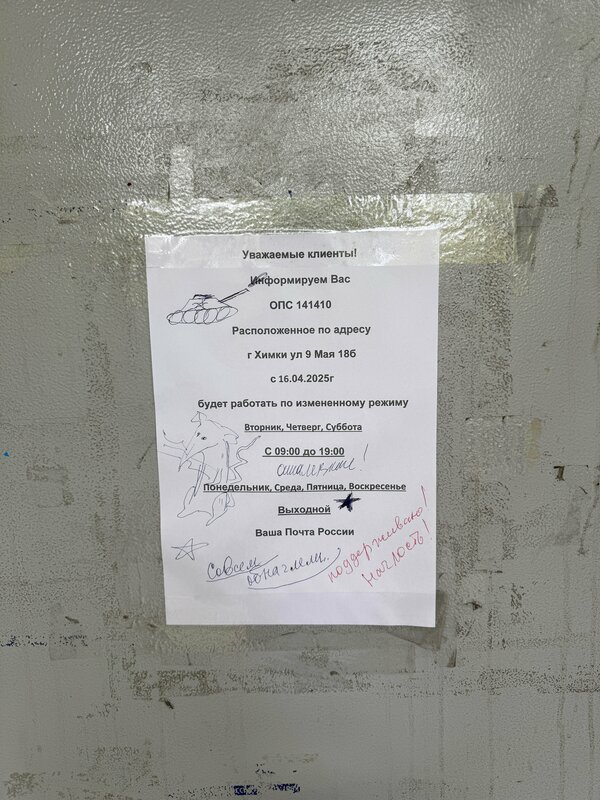 Уважаемые клиенты!
Информируем Вас
ОПС 141410
Расположенное по адресу
г Химки ул 9 Мая 18б
с 16.04.2025г
будет работать по измененному режиму
Вторник, Четверг, Суббота
С 09:00 до 19:00
ошалевшие!
Понедельник, Среда, Пятница, Воскресенье
Выходной
Ваша Почта России
Совсем
обнаглели..
поддерживаю!
Наглость!